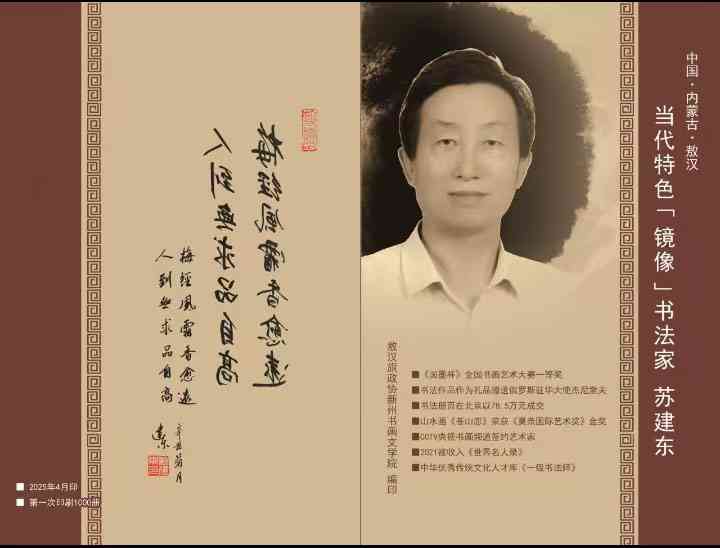 中国·内蒙古·敖汉
当代特色「镜像」书法家 苏建东
■《羲墨杯》全国书画艺术大赛一等奖
■书法作品作为礼品赠送俄罗斯驻华大使杰尼索夫
■书法册页在北京以78.5万元成交
■山水画《苍山恋》荣获《夏奈国际艺术奖》金奖
■CCTV央视书画频道签约艺术家
■2021被收入《世界名人录》
■中华优秀传统文化人才库《一级书法师》
敖汉旗政协新州书画文学院 编印
梅經風霜香愈遠
人到無求品自高
梅經風霜香愈遠
人到無求品自高
■ 2025年4月印
■ 第一次印刷1000册